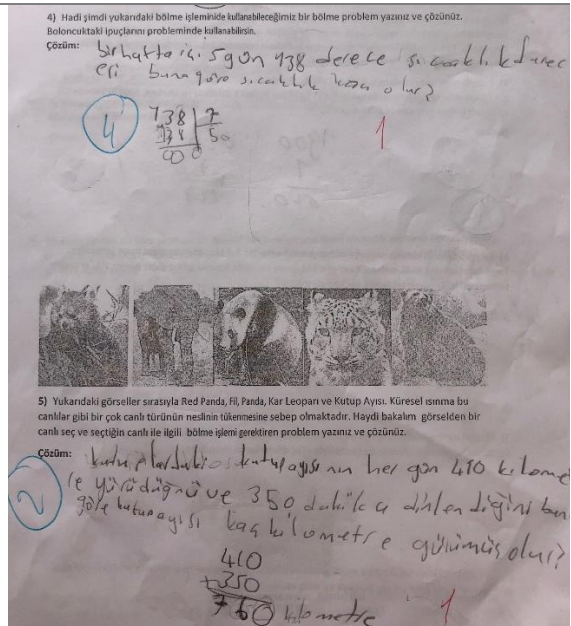 4) Hadi şimdi yukarıdaki bölme işleminide kullanabileceğimiz bir bölme problem yazınız ve çözünüz.
Boloncuktaki ipuçlarını probleminde kullanabilirsin.
Çözüm: bir hafta içi 5 gün 738 derece sıcaklık derec
eri buna göre sıcaklık kaç olur?
4
738 7
738 50
000
1
5) Yukarıdaki görseller sırasıyla Red Panda, Fil, Panda, Kar Leoparı ve Kutup Ayısı. Küresel ısınma bu
canlılar gibi bir çok canlı türünün neslinin tükenmesine sebep olmaktadır. Haydi bakalım görselden bir
canlı seç ve seçtiğin canlı ile ilgili bölme işlemi gerektiren problem yazınız ve çözünüz.
Çözüm: kutup ayısının her gün 410 kilomet
re yürüdüğünü ve 350 dakika dinlendiğini bun
göre kutup ayısı kaç kilometre yürümüş olur?
2
410
+350
760 kilometre
1